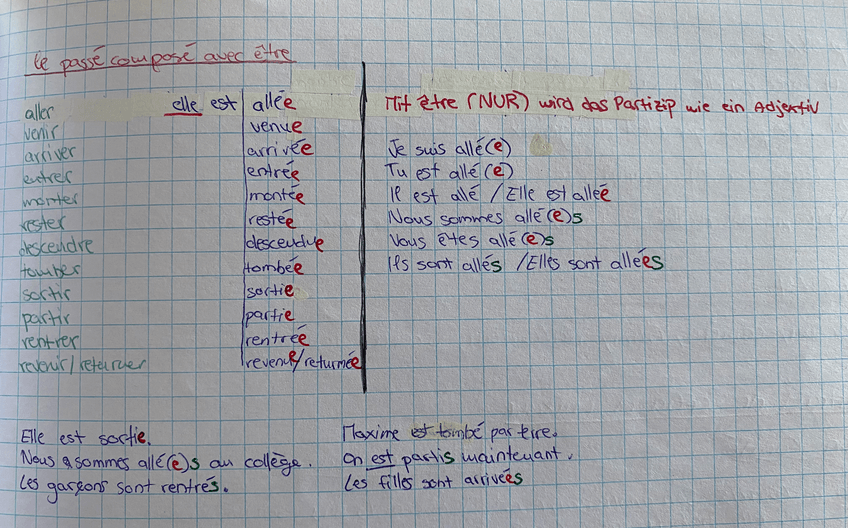 le passé composé avec être
aller elle est allée
venir venue
arriver arrivée
entrer entrée
monter montée
rester restée
descendre descendue
tomber tombée
sortir sortie
partir partie
rentrer rentrée
revenir/returner revenue/returnée
Mit être (NUR) wird das Partizip wie ein Adjektiv
Je suis allé(e)
Tu est allé(e)
Il est allé / Elle est allée
Nous sommes allé(e)s
Vous êtes allé(e)s
Ils sont allés / Elles sont allées
Elle est sortie.
Nous sommes allé(e)s au collège.
Les garçons sont rentrés.
Maxime est tombé par terre.
On est partis maintenant.
Les filles sont arrivées